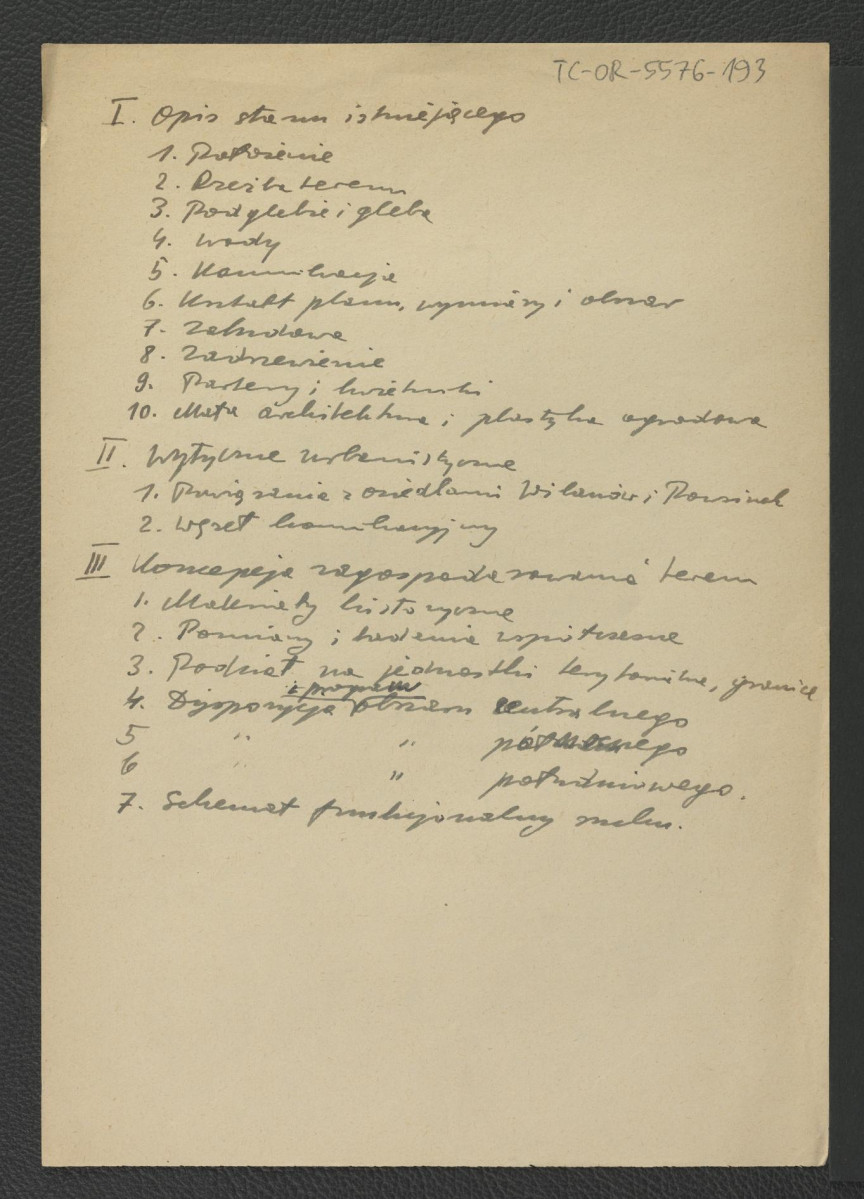 TC-OR-5576-193
I. Opis stanu istniejącego
1. Położenie
2. Rzeźba terenu
3. Podglebie i gleba
4. Wody
5. Komunikacja
6. Kształt planu, wymiary i obszar
7. Zabudowa
8. Zadrzewienie
9. Partery i kwietniki
10. Mała architektura i plastyka ogrodowa
II. Wytyczne urbanistyczne
1. Powiązania z osiedlami Wilanów i Powsinek
2. Węzeł komunikacyjny
III Koncepcja zagospodarowania terenu
1. Materiały historyczne
2. Pomiary i badania współczesne
3. Podział na jednostki terytorialne, granice
i program
4. Dyspozycja obszaru centralnego
5 " " północnego
6 " " południowego.
7. Schemat funkcjonalny ruchu.